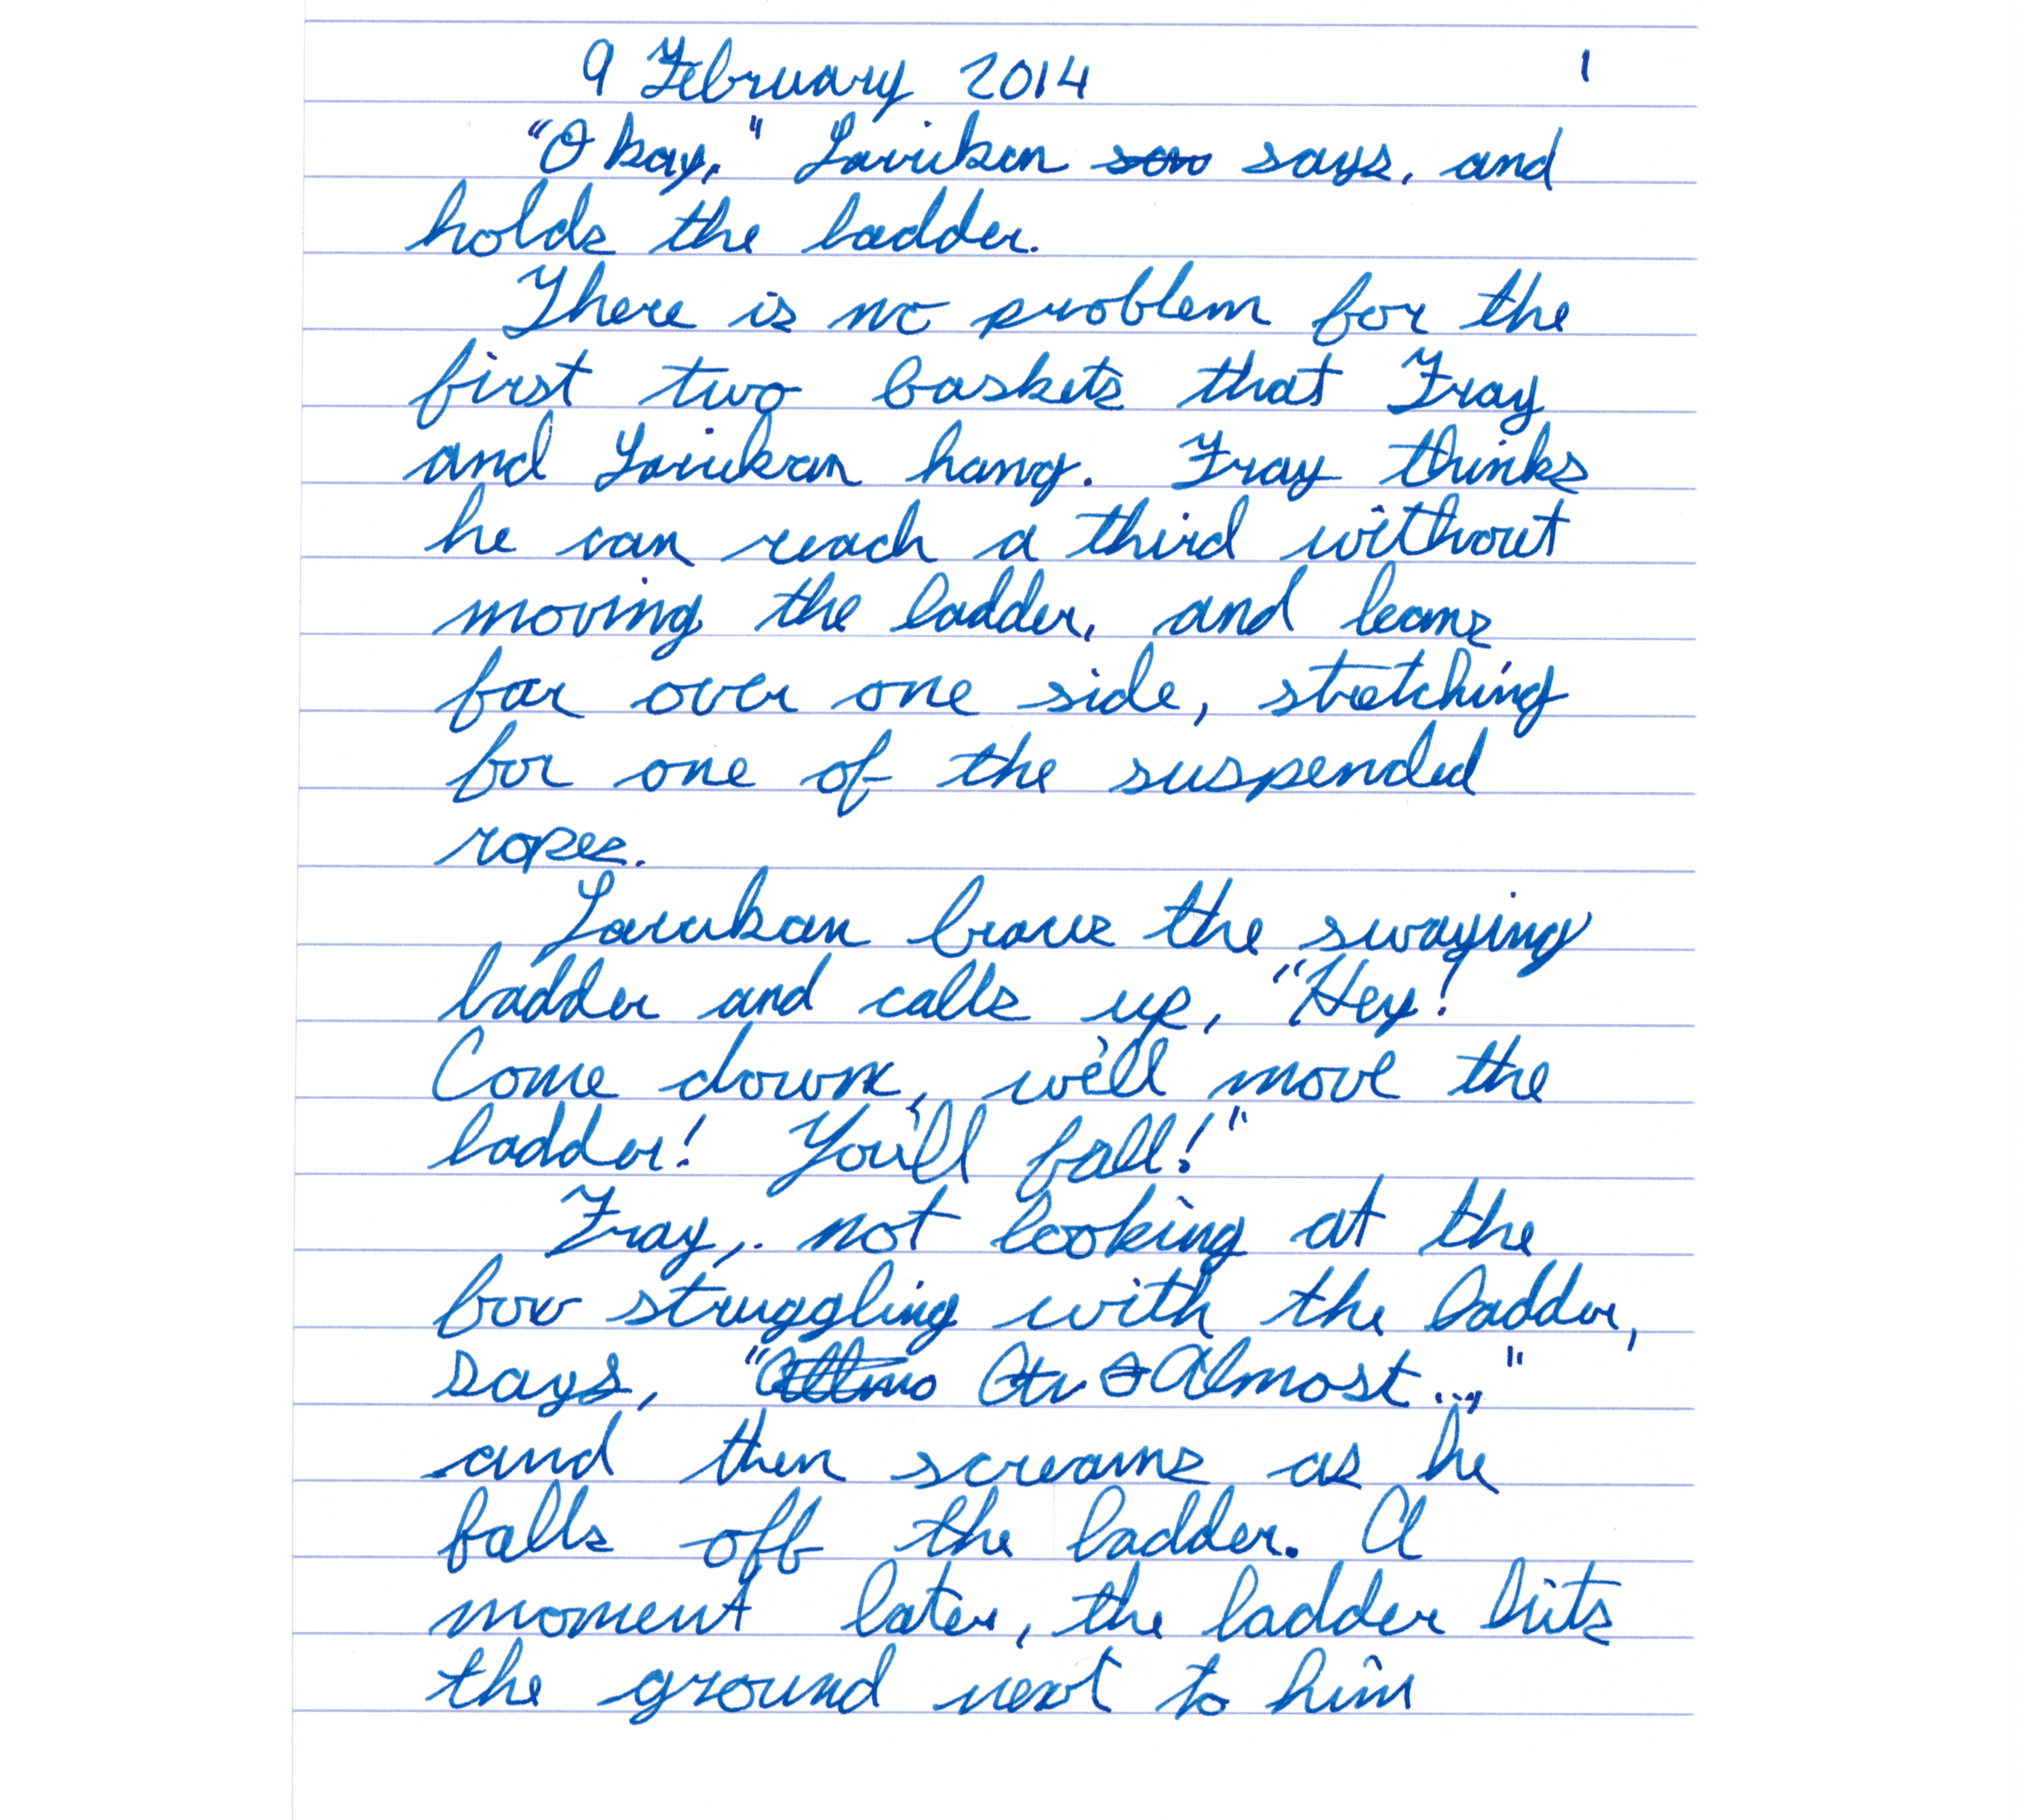 9 February 2014 1
"Okay," Larikan says, and
holds the ladder.
There is no problem for the
first two baskets that Fray
and Larikan hang. Fray thinks
he can reach a third without
moving the ladder, and leans
far over one side, stretching
for one of the suspended
ropes.
Larikan braces the swaying
ladder and calls up, "Hey!
Come down, we'll move the
ladder! You'll fall!"
Fray, not looking at the
boy struggling with the ladder,
says, "Almost..."
and then screams as he
falls off the ladder. A
moment later, the ladder hits
the ground next to him